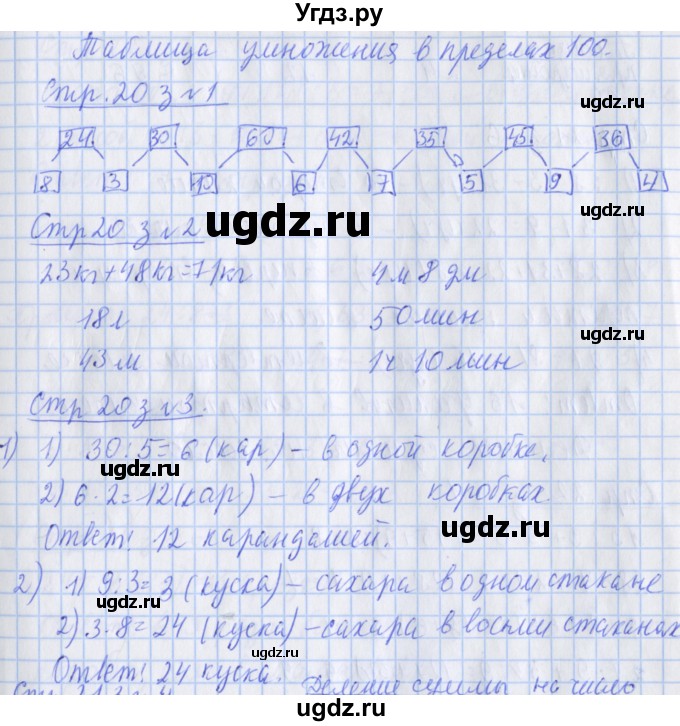 Угдз.ру
Таблица умножения в пределах 100.
Стр. 20 з №1
24 30 60 42 35 45 36
8 3 10 6 7 5 9 4
Стр 20 з №2
23кг+48кг=71кг 4 м 8 дм
18л 50 мин
43 м 1ч 10 мин
Стр 20 з №3.
1) 1) 30:5=6 (кар) – в одной коробке.
2) 6·2=12(кар) – в двух коробках.
Ответ! 12 карандашей.
2) 1) 9:3=3 (куска) – сахара в одном стакане
2) 3·8=24 (куска) – сахара в восьми стаканах
Ответ! 24 куска.
Деление суммы на число
ugdz.ru
ugdz.ru
ugdz.ru
ugdz.ru
ugdz.ru
ugdz.ru
ugdz.ru
ugdz.ru
ugdz.ru
ugdz.ru
ugdz.ru
ugdz.ru